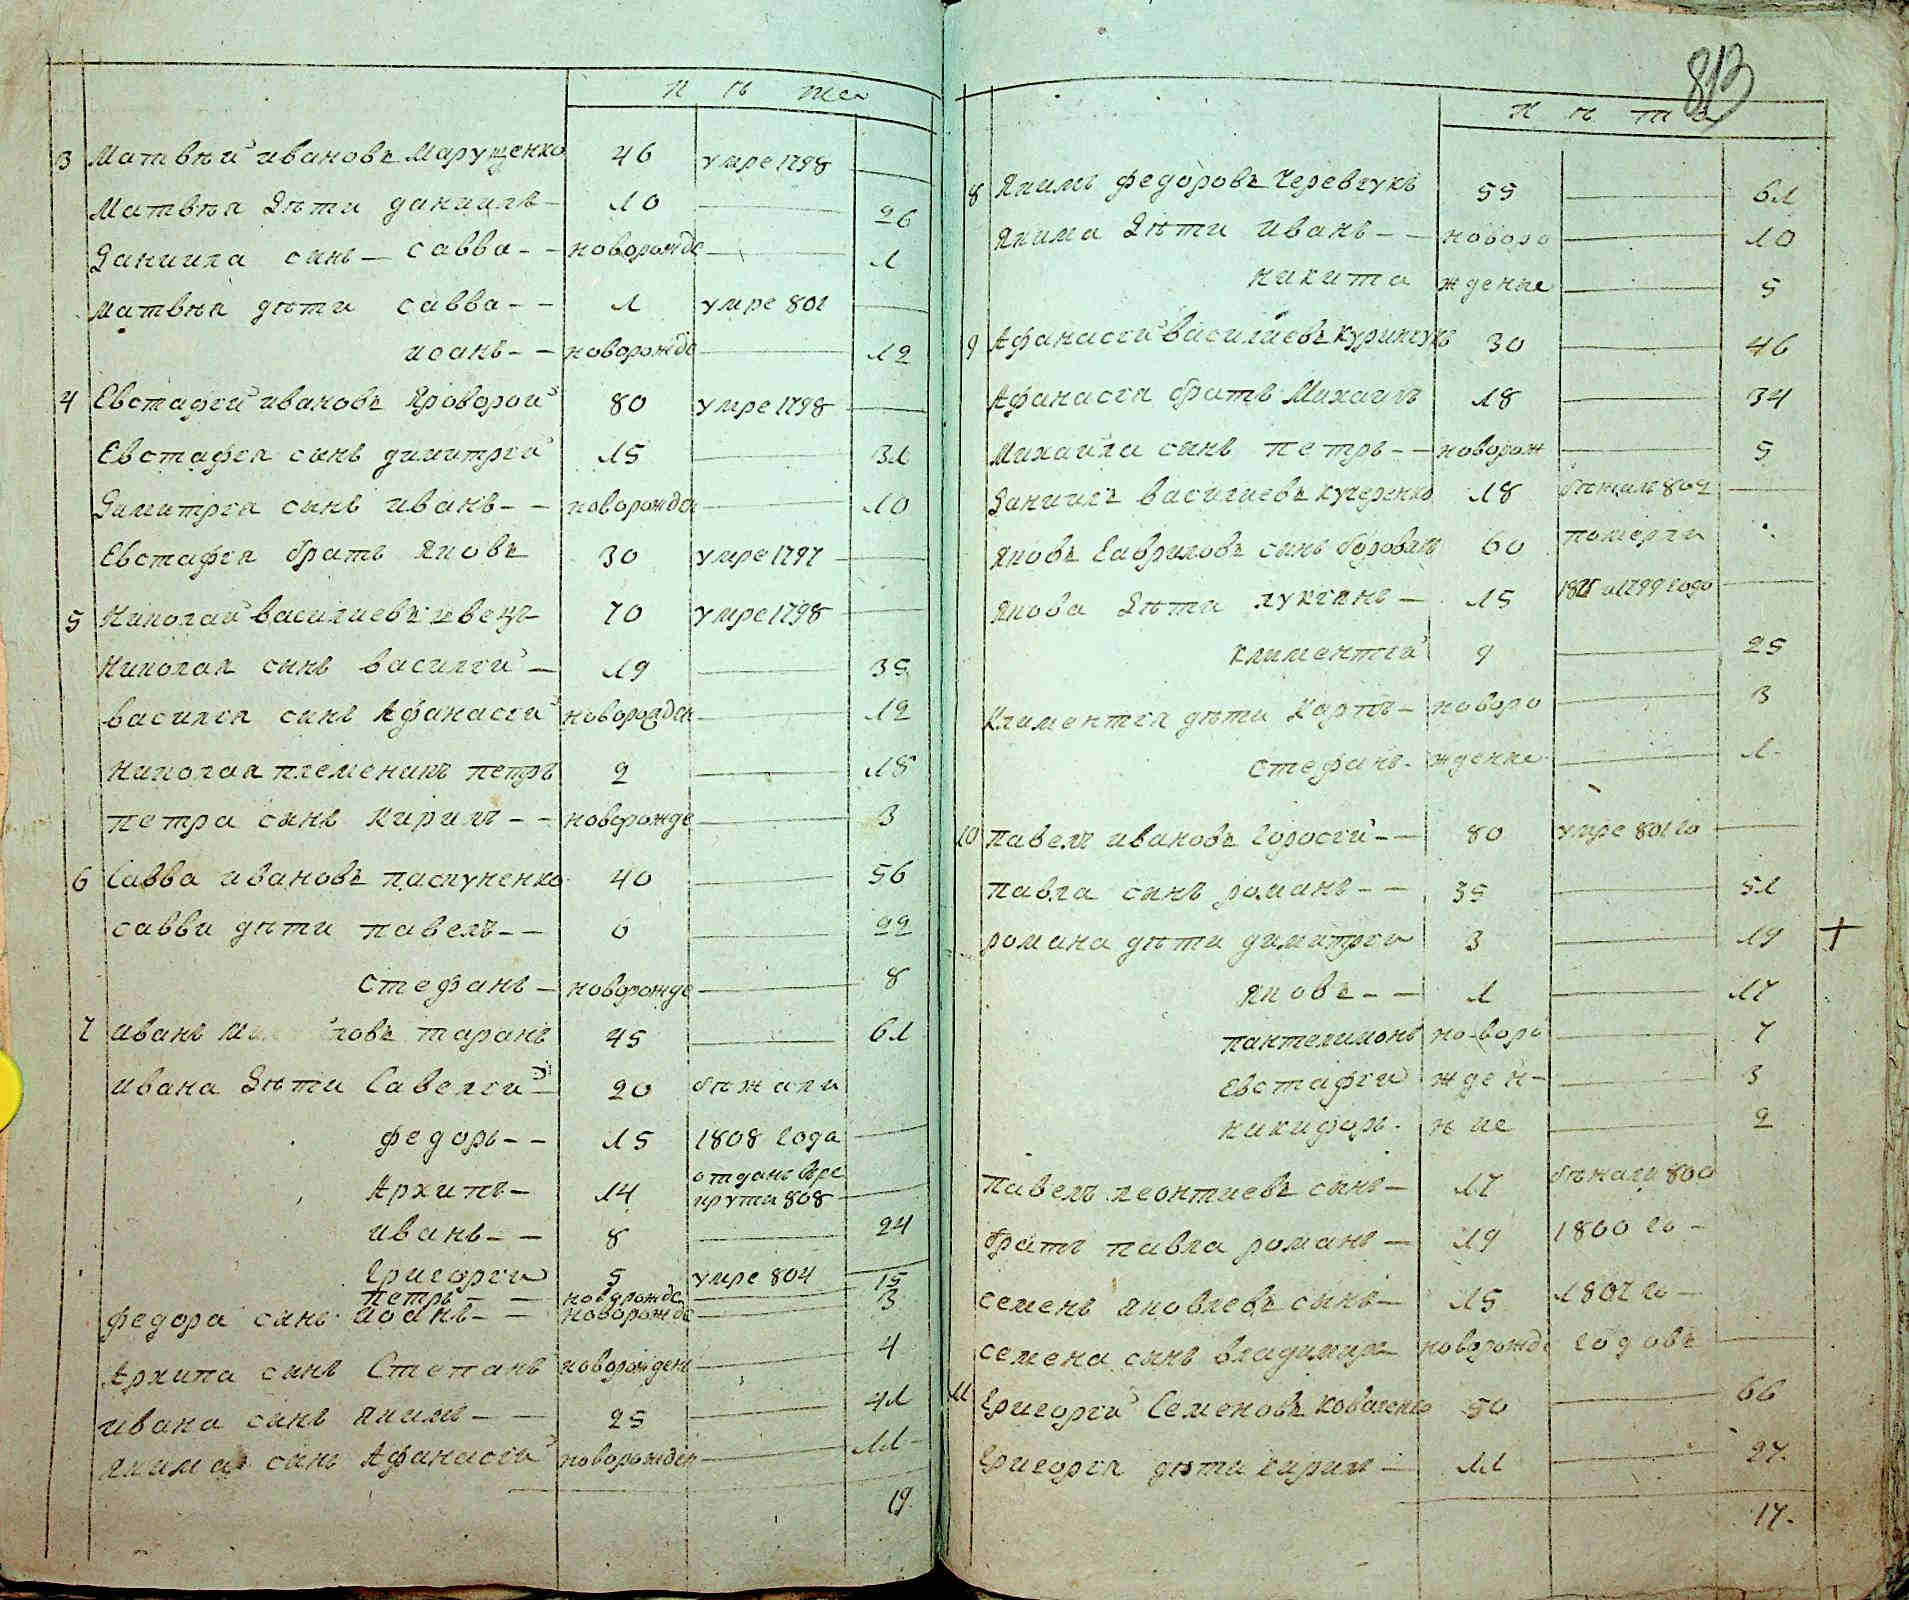 813
3 Матвѣй Ивановъ Марущенко 46 умре 1798
Матвѣя Дѣти Даниилъ 10 26
Даниила сынъ Савва новорожде 1
Матвѣя дѣти Савва 1 умре 801
Иоанъ новорожде 12
4 Евстафей Ивановъ Яровой 80 умре 1798
Евстафея сынъ Димитрей 15 31
Димитрея сынъ Иванъ новорожден 10
Евстафея братъ Яковъ 30 умре 1797
5 Николай Василиевъ Швецъ 70 умре 1798
Николая сынъ Василей 19 35
Василея сынъ Афанасей новорожден 12
Николая племеникъ Петръ 2 18
Петра сынъ Кирилъ новорожде 3
6 Савва Ивановъ 40 56
Савви дѣти Павелъ 6 22
Стефанъ новорожде 8
7 Иванъ Таранъ 45 61
Ивана Дѣти Савелей 20 бѣжали
Федоръ 15 1808 года
Архипъ 14 отданъ в рекрути 808
Иванъ 8 24
Григорей 5 умре 804
Петръ новорожде 15
Федора сынъ Иоанъ новорожде 3
Архипа сынъ Степанъ новорожден 4
Ивана сынъ Якимъ 25 41
Якима сынъ Афанасей новорожден 11
19.
8 Якимъ Федоровъ Черевчукъ 55 61
Якима Дѣти Иванъ новоро 10
Никита жденые 5
9 Афанасей Василиевъ 30 46
Афанасея братъ Михаилъ 18 34
Михаила сынъ Петръ новорож 5
Даниилъ Василиевъ Кучеренко 18 бѣжалъ 802
Яковъ Гавриловъ сынъ 60 померли
Якова Дѣти Лукіянъ 15 1799 годо
Климентей 9 25
Климентея дѣти Карпъ новоро 3
Стефанъ жденые 1
10 Павелъ Ивановъ 80 умре 801 го
Павла сынъ Романъ 35 51
Романа дѣти Димитрей 3 19
Яковъ 1 17
Пантелимонъ новоро 7
Евстафей жден 3
Никифоръ ные 2
Павелъ Леонтиевъ сынъ 17 бѣжали 800
братъ Павла Романъ 19 1800 го
Семенъ Яковлевъ сынъ 15 1802 го
Семена сынъ Владимиръ новорожде годовъ
11 Григорей Семеновъ Коваленко 50 66
Григорея дѣти Кирилъ 11 27.
17.